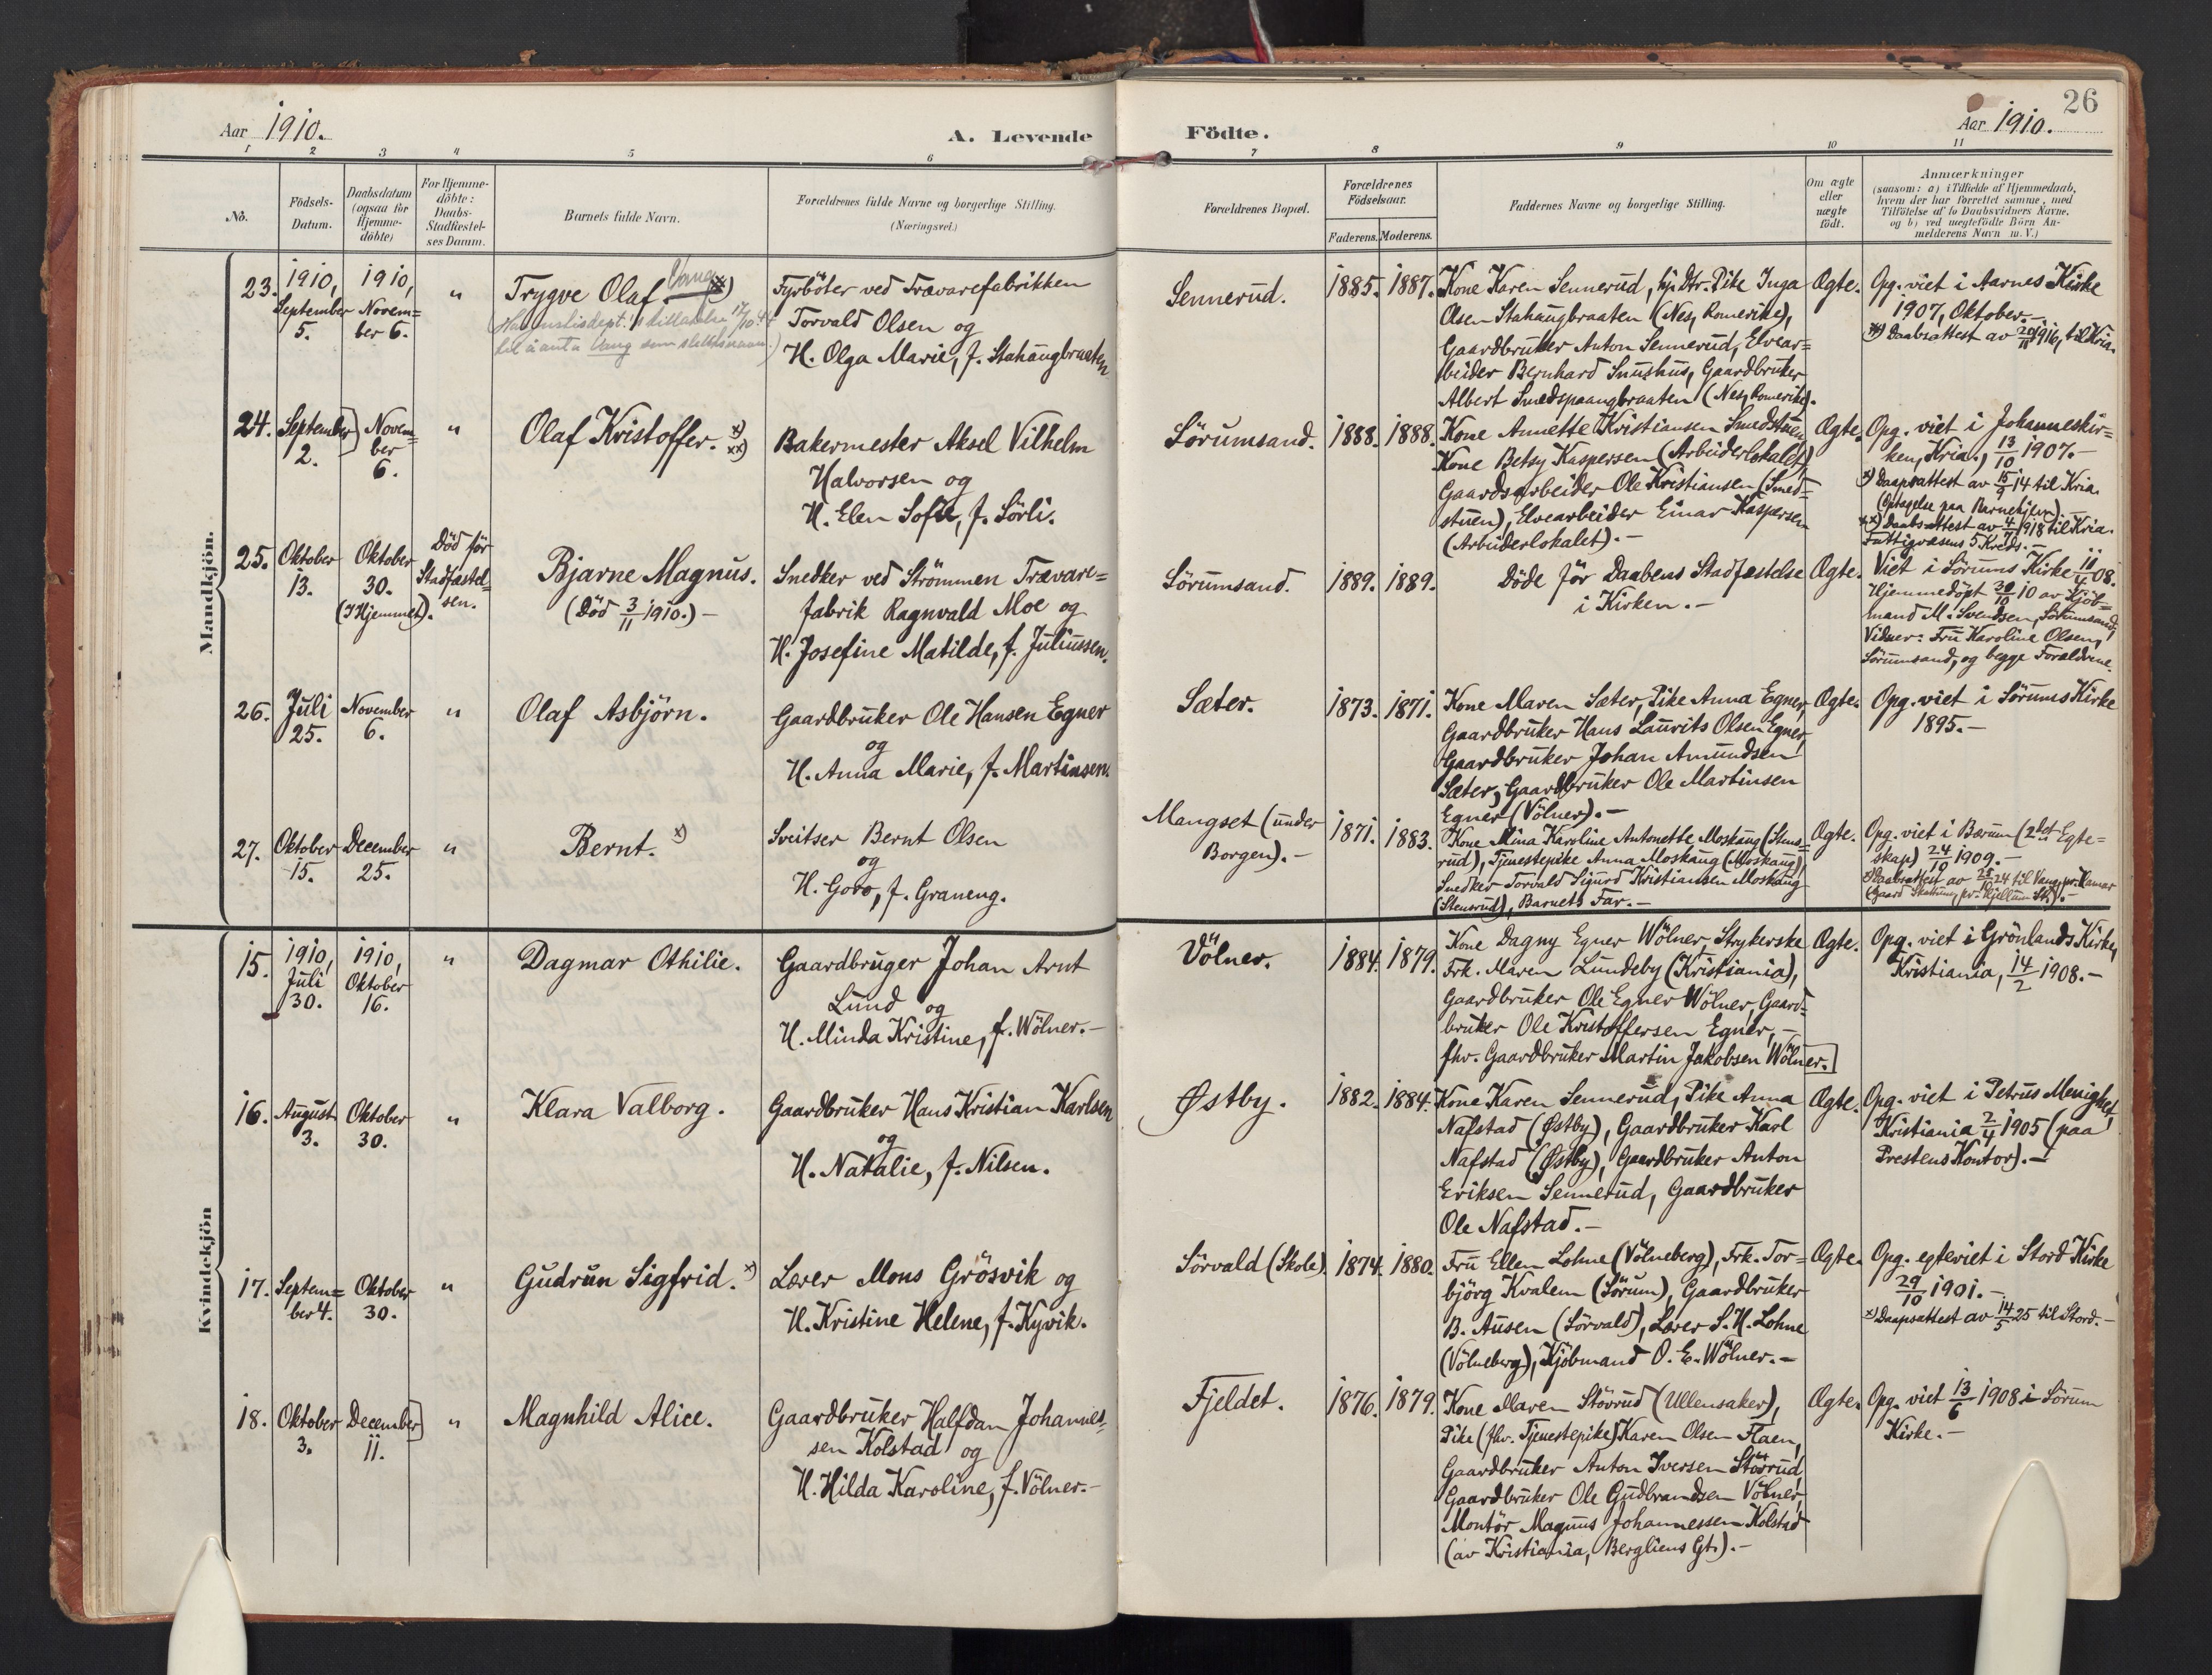 26
Aar 1910.
A. Levende
Födte.
Aar 1910.
1 2 3 4 5 6 7 8 9 10 11
No.
Födsels-
Datum.
Daabsdatum
(ogsaa for
Hjemme-
döbte)
For Hjemme-
döbte:
Daabs-
Stadfæstel-
ses Datum.
Barnets fulde Navn.
Forældrenes fulde Navne og borgerlige Stilling.
(Næringsvei.)
Forældrenes Bopæl.
Forældrenes
Födselsaar.
Faderens.
Moderens.
Faddernes Navne og borgerlige Stilling.
Om ægte
eller
uægte
födt.
Anmærkninger
(saasom: a) i Tilfælde af Hjemmedaab,
hvem der har forrettet samme, med
Tilföielse af to Daabsvidners Navne,
og b) ved uægtefödte Börn An-
melderens Navn m. V.)
Mandkjön.
23.
1910,
September
5.
1910,
Novem=
ber 6.
"
Trygve Olaf. Vang x)
til å anta Vang som slektsnavn.)
Fyrböter ved Trævarefabrikken
Torvald Olsen og
H. Olga Marie, f. Stahaugbraaten.
Sennerud.
1885.
1887.
Kone Karen Sennerud, hj. Dtr. Pike Inga
Olsen Stahaugbraaten (Nes, Romerike),
Gaardbruker Anton Sennerud, Elvear=
beider Bernhard Snushus, Gaardbruker
Albert Smedspaangbraaten (Nes, Romerike).
Ægte.
Opg. viet i Aarnes Kirke
1907, Oktober.-
x) Daabsattest av 20/11 1916, til Kria.
24.
September
2.
Novem=
ber
6.
"
Olaf Kristoffer. x)
xx)
Bakermester Aksel Vilhelm
Halvorsen og
H. Elen Sofie, f. Sörli.
Sörumsand.
1888.
1888.
Kone Annette Kristiansen Smedstuen
Kone Betsy Kaspersen (Arbeiderlokalet),
Gaardsarbeider Ole Kristiansen (Smed=
stuen), Elvearbeider Einar Kaspersen
(Arbeiderlokalet).-
Ægte.
Opg. viet i Johanneskir=
ken, Kria., 13/10 1907.-
x) Daapsattest av 15/9 14 til Kria.
(Optagelse paa Barnehjem).-
xx) Daabsattest av 4/7 1918 til Kria.
Fattigvæsens 5 Kreds.-
25.
Oktober
13.
Oktober
30.
(I Hjemmet).
Död för
Stadfæstel=
sen.
Bjarne Magnus.
(Död 3/11 1910.)-
Snedker ved Strömmen Trævare=
fabrik Ragnvald Moe og
H. Josefine Matilde, f. Juliussen.
Sörumsand.
1889.
1889.
Döde för Daabens Stadfæstelse
i Kirken.-
Ægte.
Viet i Sörums Kirke 11/4 08.
Hjemmedöpt 30/10 10 av Kjöb=
mand M. Svendsen, Sörumsand,
Vidner: Fru Karoline Olsen,
Sörumsand, og begge Forældrene.
26.
Juli
25.
November
6.
"
Olaf Asbjörn.
Gaardbruker Ole Hansen Egner
og
H. Anna Marie, f. Martinsen.
Sæter.
1873.
1871.
Kone Maren Sæter, Pike Anna Egner,
Gaardbruker Hans Laurits Olsen Egner,
Gaardbruker Johan Amundsen
Sæter, Gaardbruker Ole Martinsen
Egner (Völner).-
Ægte.
Opg. viet i Sörums Kirke
1895.-
27.
Oktober
15.
December
25.
"
Bernt. x)
Sveitser Bernt Olsen
og
H. Goro, f. Graneng.
Mangset (under
Borgen).-
1871.
1883.
Kone Mina Karoline Antonette Moskaug (Stens=
rud), Tjenestepike Anna Moskaug (Moskaug),
Snedker Torvald Sigurd Kristiansen Moskaug
(Stensrud), Barnets Far.-
Ægte.
Opg. viet i Bærum (2det Egte=
skap) 24/10 1909.-
x) Daabsattest av 24 til Vang, pr. Hamar
(Gaard Skattum, pr. Hjellum St.).-
Kvindekjön
15.
1910,
Juli
30.
1910,
Oktober
16.
"
Dagmar Othilie.
Gaardbruger Johan Arnt
Lund og
H. Minda Kristine, f. Wölner.-
Völner.
1884.
1879.
Kone Dagny Egner Wölner, Strykerske
Frk. Maren Lundeby (Kristiania),
Gaardbruker Ole Egner Wölner, Gaard=
bruker Ole Kristoffersen Egner,-
fhv. Gaardbruker Martin Jakobsen Wölner.
Ægte.
Opg. viet i Grönlands Kirke,
Kristiania, 14/2 1908.-
16.
August
3.
Oktober
30.
"
Klara Valborg.
Gaardbruker Hans Kristian Karlsen
og
H. Natalie, f. Nilsen.
Østby.
1882.
1884.
Kone Karen Sennerud, Pike Anna
Nafstad (Østby), Gaardbruker Karl
Nafstad (Østby), Gaardbruker Anton
Eriksen Sennerud, Gaardbruker
Ole Nafstad.-
Ægte.
Opg. viet i Petrus Menighet,
Kristiania 2/4 1905 (paa
Prestens Kontor).-
17.
Septem=
ber 4.
Oktober
30.
"
Gudrun Sigfrid. x)
Lærer Mons Grösvik og
H. Kristine Helene, f. Kyvik.
Sörvald (Skole).
1874.
1880.
Fru Ellen Lohne (Völneberg), Frk. Tor=
björg Kvalem (Sörum), Gaardbruker
B. Ausen (Sörvald), Lærer S. H. Lohne
(Völneberg), Kjöbmand O. E. Wölner.-
Ægte.
Opg. egteviet i Stord Kirke
29/10 1901.-
x) Daapsattest av 14/5 25 til Stord.-
18.
Oktober
3.
December
11.
"
Magnhild Alice.
Gaardbruker Halfdan Johannes=
sen Kolstad og
H. Hilda Karoline, f. Völner.-
Fjeldet.
1876.
1879.
Kone Maren Stövrud (Ullensaker),
Pike (fhv. Tjenestepike) Karen Olsen Flaen,
Gaardbruker Anton Iversen Stövrud,
Gaardbruker Ole Gudbrandsen Völner,
Montör Magnus Johannessen Kolstad
(av Kristiania, Bergliens Gt.).-
Ægte.
Opg. viet 13/6 1908 i Sörum
Kirke.-